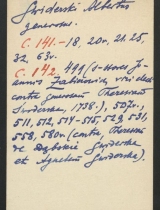 Świderski Albertus
generosus.
C. 141. - 18, 20, 21, 25,
32, 63v.
C. 142, 499 (v-Nores Jo-
annis Zabicki, viri
contra generosam Theresiam
Świderska, 1738.), 507v.,
511, 512, 514-515, 529, 531,
558, 580v (contra Theresiam
de Dąbskie Świderska
et Agnetem Świderska).